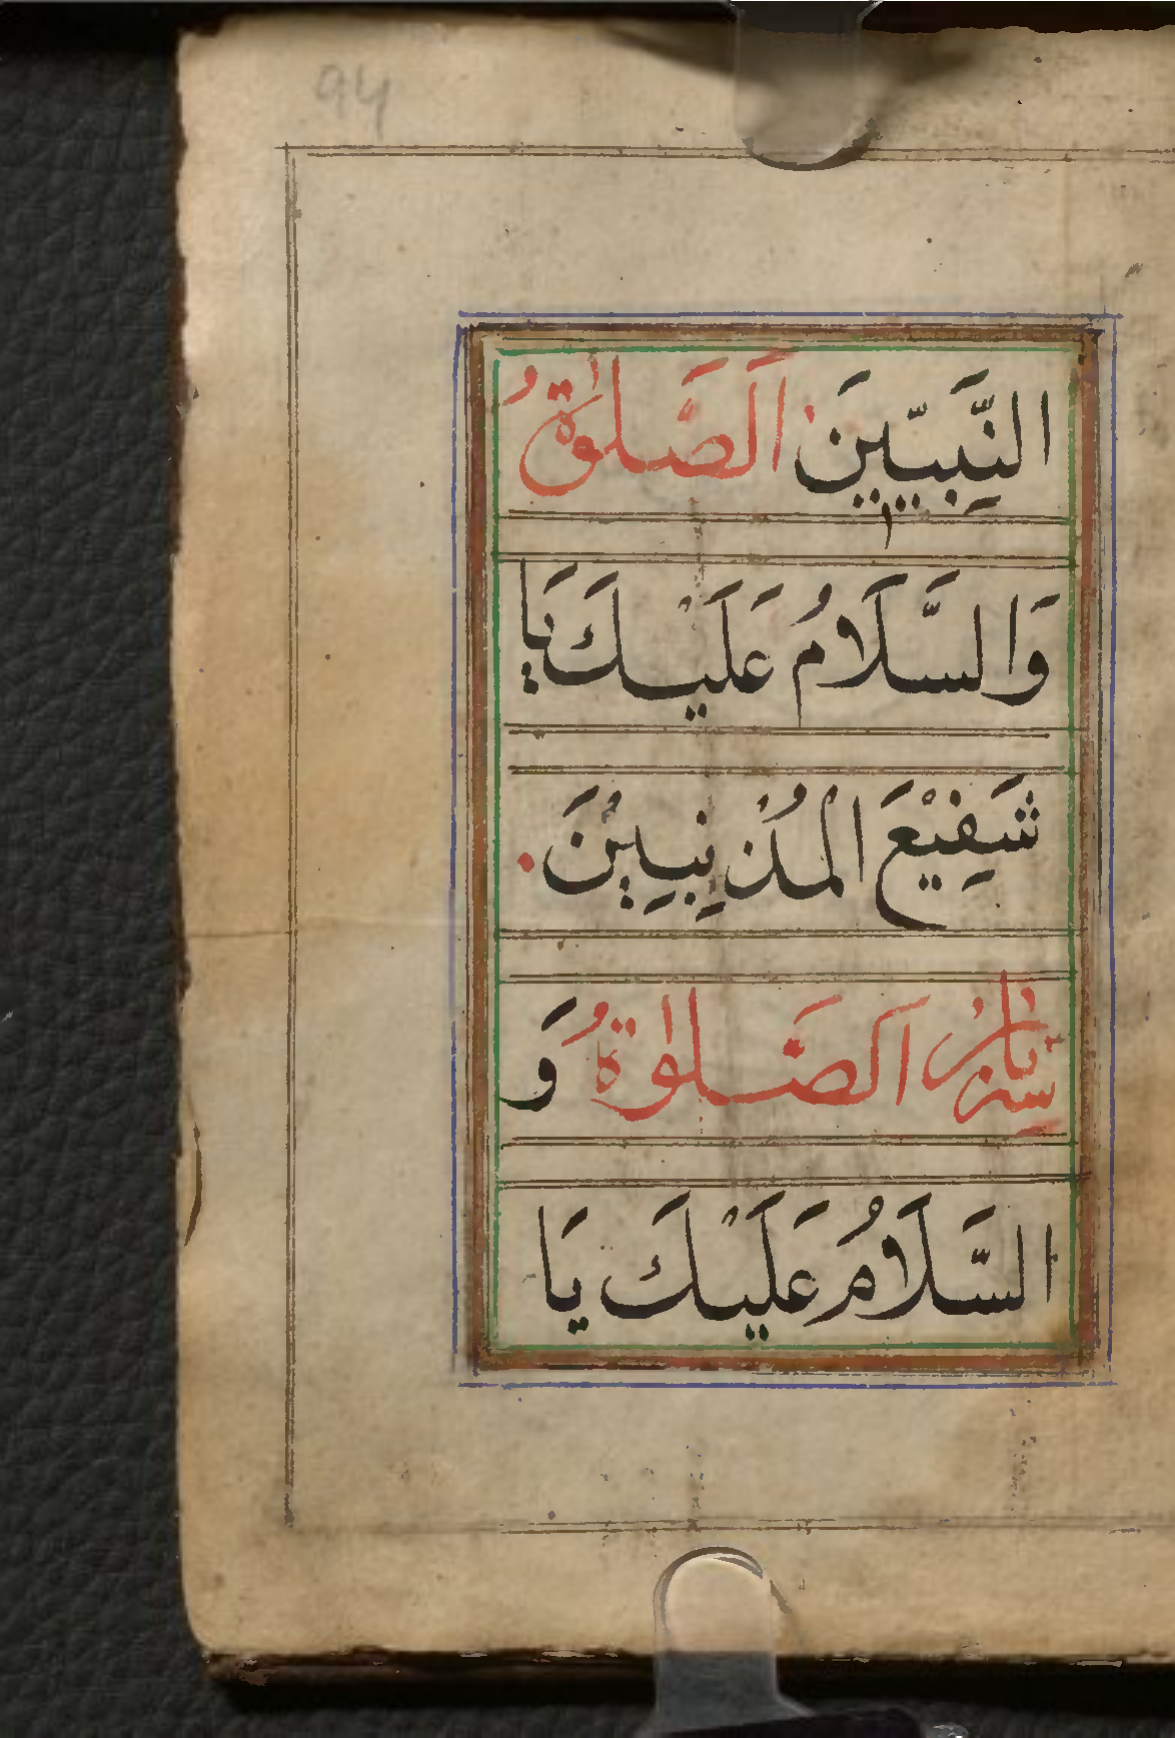 94
النَّبِيّٖينَ اَلصَّلوٰةُ
وَالسَّلَامُ عَلَيْكَ يَا
شَفِيْعَ الْمُذْنِبِيْنَ
اَلصَّلوٰةُ وَ
السَّلَامُ عَلَيْكَ يَا